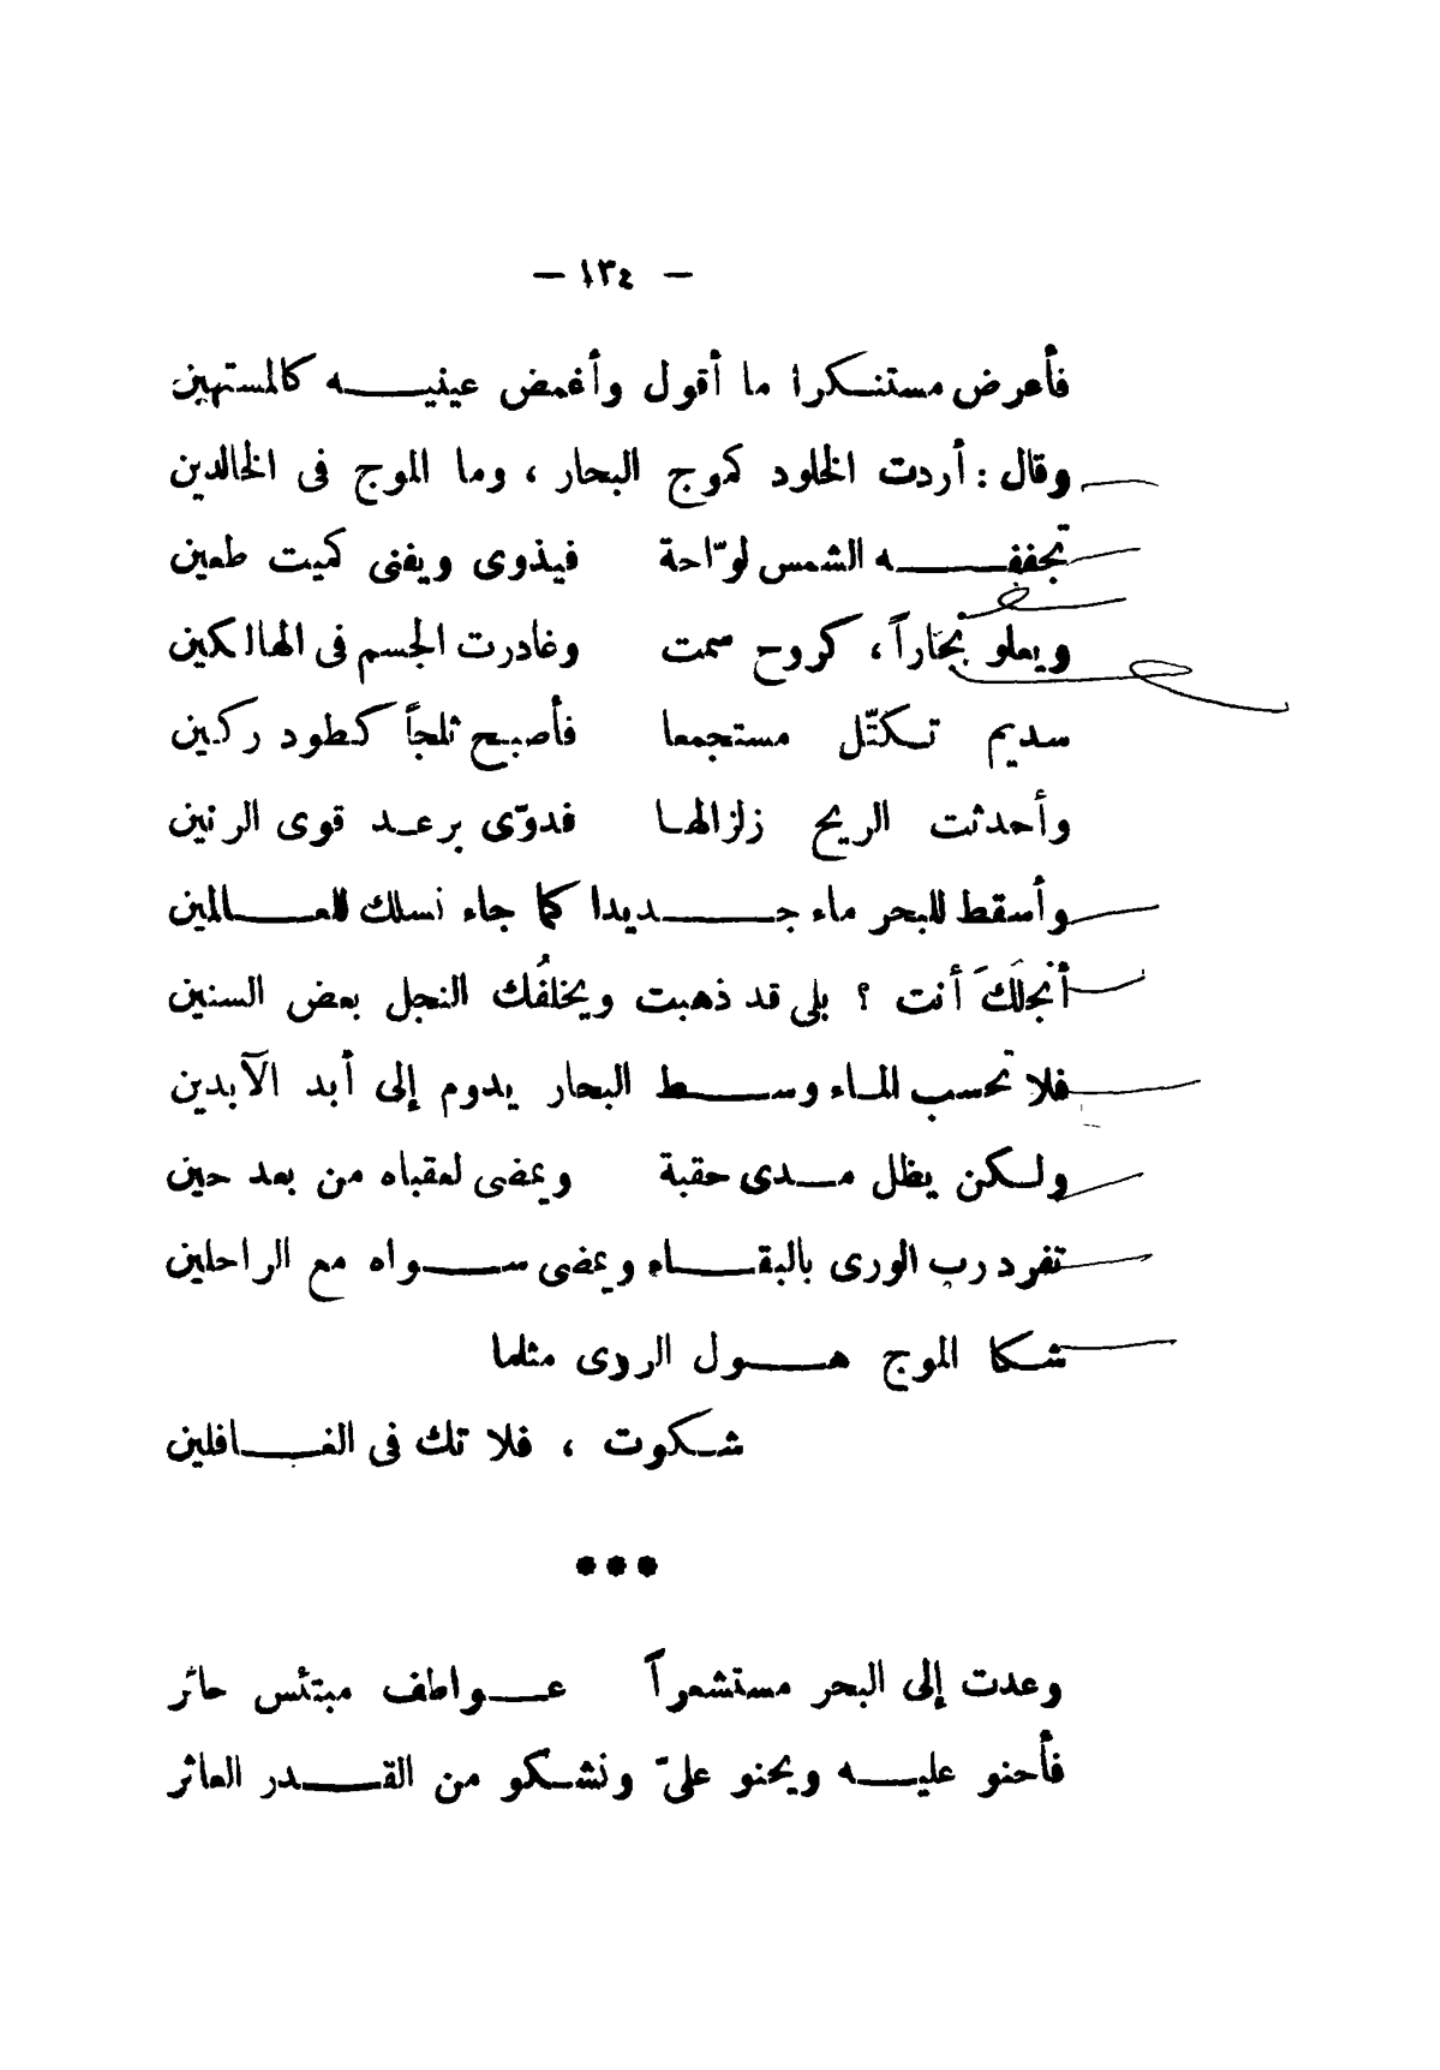 — ١٣٤ —
فأعرض مستنكرا ما أقول وأغمض عينيه كالمستهين
وقال : أردت الخلود كموج البحار ، وما الموج فى الخالدين
تجففه الشمس لوّاحة فيذوى ويفنى كميت طعين
ويعلو بخاراً ، كروح سمت وغادرت الجسم فى الهالكين
سديم تكتّل مستجمعا فأصبح ثلجاً كطود ركين
وأحدثت الريح زلزالها فدوّى برعد قوى الرنين
وأسقط للبحر ماء جديدا كما جاء نسلك للعالمين
أنجلَكَ أنت ؟ بلى قد ذهبت ويخلفُك النجل بعض السنين
فلا تحسب الماء وسط البحار يدوم إلى أبد الآبدين
ولكن يظل مدى حقبة ويمضى لعقباه من بعد حين
تفرد رب الورى بالبقاء ويمضى سواه مع الراحلين
شكا الموج هول الردى مثلما
شكوت ، فلا تك فى الغافلين
***
وعدت إلى البحر مستشعراً عواطف مبتئس حائر
فأحنو عليه ويحنو علىّ ونشكو من القدر العاثر